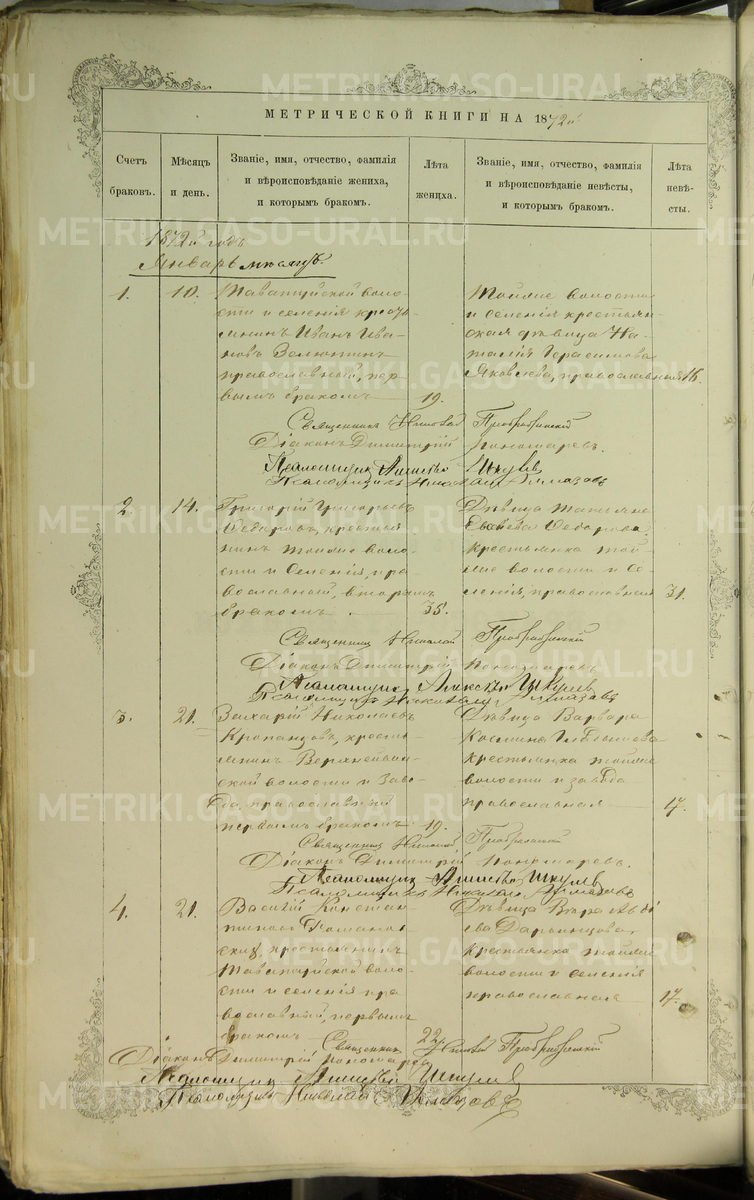 МЕТРИЧЕСКОЙ КНИГИ НА 1872й
Счетъ браковъ.
Мѣсяцъ и день.
Званіе, имя, отчество, фамилія и вѣроисповѣданіе жениха, и которымъ бракомъ.
Лѣта жениха.
Званіе, имя, отчество, фамилія и вѣроисповѣданіе невѣсты, и которымъ бракомъ.
Лѣта невѣсты.
1872й годъ
Январь мѣсяцъ.
1.
10.
Таватуйской воло-
сти и селенія кресть-
янинъ Иванъ Ива-
новъ
православный, пер-
вымъ бракомъ
19.
Тойже волости
и селенія крестьян-
ская дѣвица На-
талія Герасимова
Яковлева, православная
16.
Священникъ Николай Преображенскій
Діаконъ Димитрій Пономаревъ.
Псаломщикъ Алексѣй Шкулевъ
Псаломщикъ Николай
2.
14.
Григорій Григорьевъ
Федоровъ, крестья-
нинъ тойже воло-
сти и селенія, пра-
вославный, вторымъ
бракомъ
35.
Дѣвица Татьяна
Федорова
крестьянка той-
же волости и се-
ленія, православная
31.
Священникъ Николай Преображенскій
Діаконъ Димитрій Пономаревъ
Псаломщикъ Алексѣй Шкулевъ
Псаломщикъ Николай
3.
21.
Захарій Николаевъ
кресть-
янинъ Верхнейвин-
ской волости и заво-
да, православный
первымъ бракомъ
19.
Дѣвица Варвара
Косьмина
крестьянка тойже
волости и завода
православная
17.
Священникъ Николай Преображенскій
Діаконъ Димитрій Пономаревъ.
Псаломщикъ Алексѣй Шкулевъ
Псаломщикъ Николай
4.
21.
Василій Констан-
тиновъ
крестьянинъ
Таватуйской воло-
сти и селенія пра-
вославный, первымъ
бракомъ
22.
Дѣвица Вѣра Авдѣ-
ева
крестьянка тойже
волости и селенія
православная
17.
Священникъ Николай Преображенскій
Діаконъ Димитрій Пономаревъ
Псаломщикъ Алексѣй Шкулевъ
Псаломщикъ Николай
METRIKI.GASO-URAL.RU